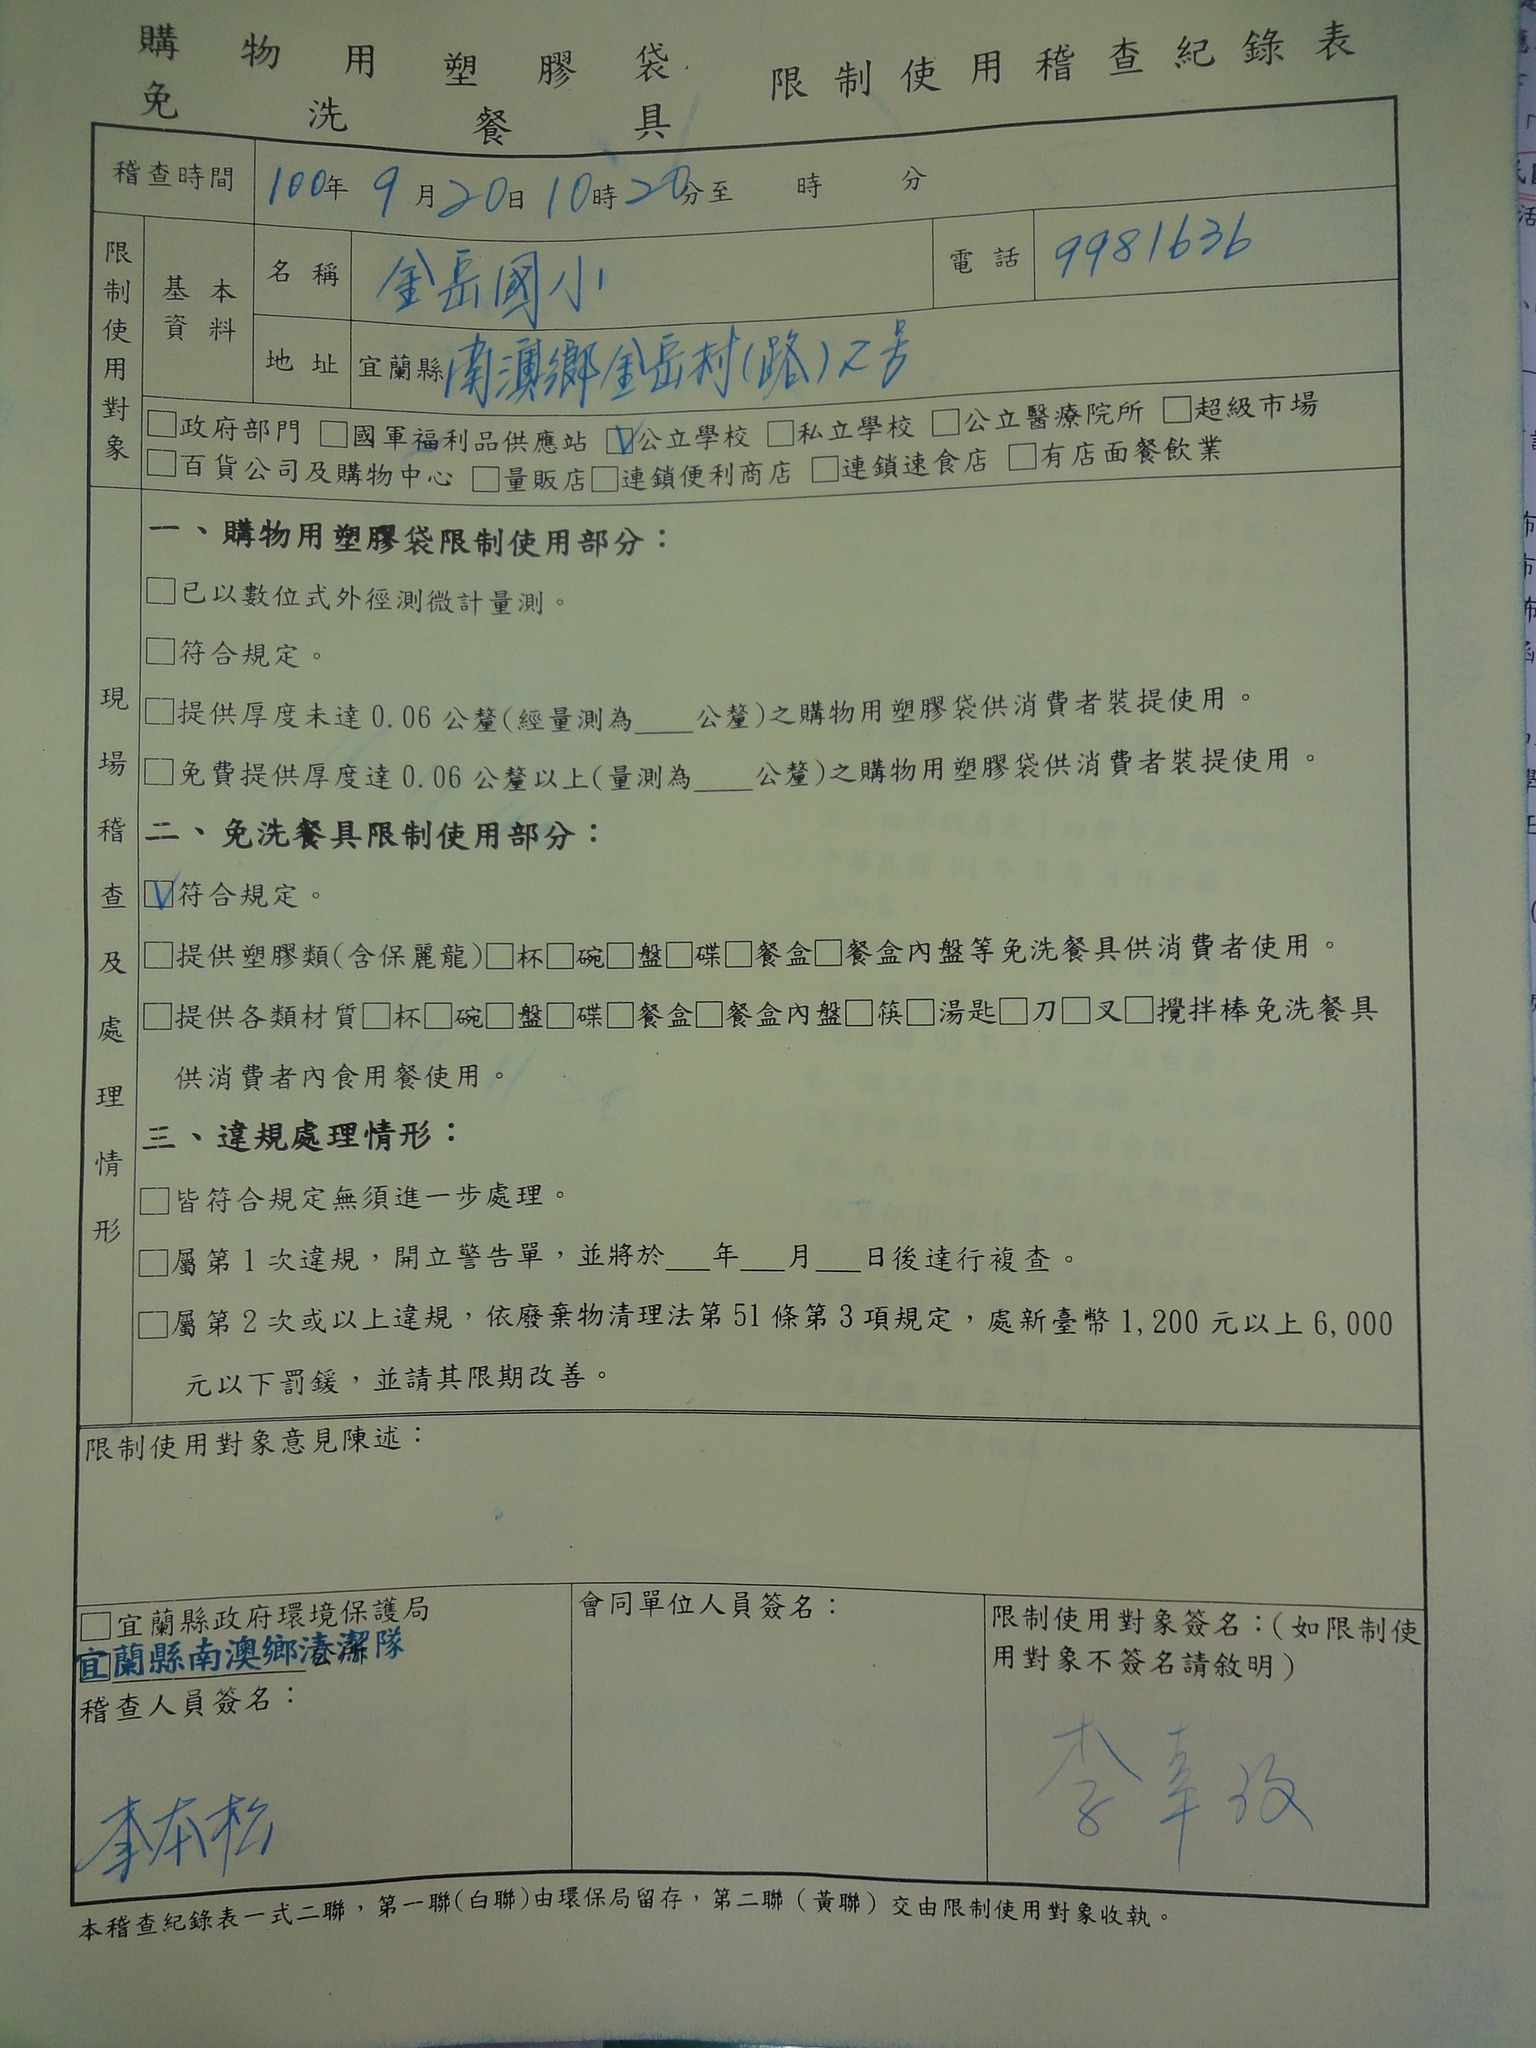 購物用塑膠袋
免洗餐具
限制使用稽查紀錄表
稽查時間 100年 9月20日 10時20分至 時 分
限制使用對象
基本資料
名稱 金岳國小
電話 9981636
地址 宜蘭縣南澳鄉金岳村(路)2號
□政府部門 □國軍福利品供應站 ☑公立學校 □私立學校 □公立醫療院所 □超級市場
□百貨公司及購物中心 □量販店□連鎖便利商店 □連鎖速食店 □有店面餐飲業
現場稽查及處理情形
一、購物用塑膠袋限制使用部分：
□已以數位式外徑測微計量測。
□符合規定。
□提供厚度未達 0.06 公釐(經量測為____公釐)之購物用塑膠袋供消費者裝提使用。
□免費提供厚度達 0.06 公釐以上(量測為____公釐)之購物用塑膠袋供消費者裝提使用。
二、免洗餐具限制使用部分：
☑符合規定。
□提供塑膠類(含保麗龍)□杯□碗□盤□碟□餐盒□餐盒內盤等免洗餐具供消費者使用。
□提供各類材質□杯□碗□盤□碟□餐盒□餐盒內盤□筷□湯匙□刀□叉□攪拌棒免洗餐具
供消費者內食用餐使用。
三、違規處理情形：
□皆符合規定無須進一步處理。
□屬第 1 次違規，開立警告單，並將於___年___月___日後達行複查。
□屬第 2 次或以上違規，依廢棄物清理法第 51 條第 3 項規定，處新臺幣 1,200 元以上 6,000
元以下罰鍰，並請其限期改善。
限制使用對象意見陳述：
□宜蘭縣政府環境保護局
宜蘭縣南澳鄉清潔隊
稽查人員簽名：
李本松
會同單位人員簽名：
限制使用對象簽名：(如限制使
用對象不簽名請敘明)
李辛
本稽查紀錄表一式二聯，第一聯(白聯)由環保局留存，第二聯（黃聯）交由限制使用對象收執。